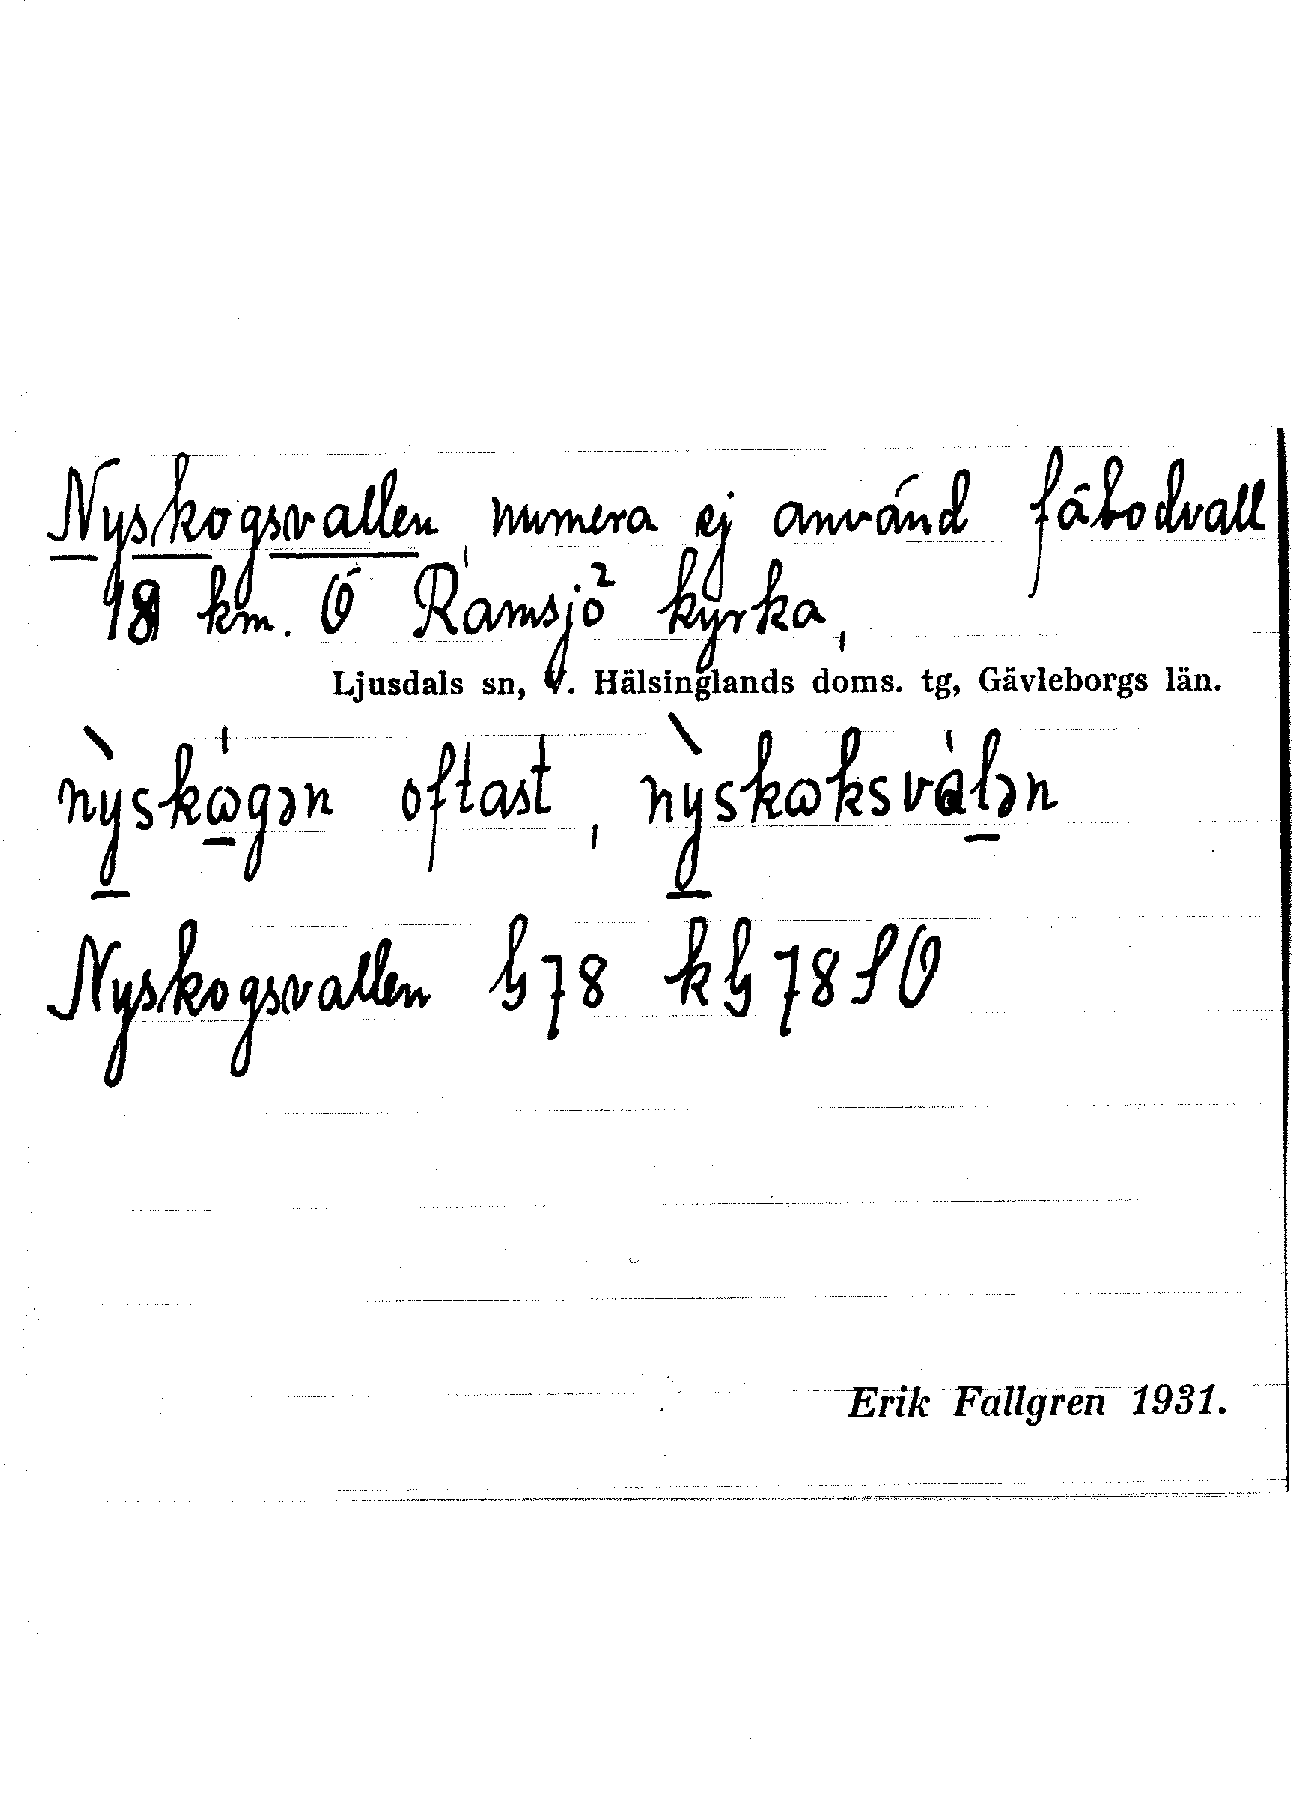 Nyskogsvallen, numera ej använd fäbodvall
18 km. Ö Ramsjö kyrka,
Ljusdals sn, V. Hälsinglands doms. tg, Gävleborgs län.
nỳskɷ̀gən oftast, nỳskɷksvàlən
Nyskogsvallen G78 kG78SO
Erik Fallgren 1931.